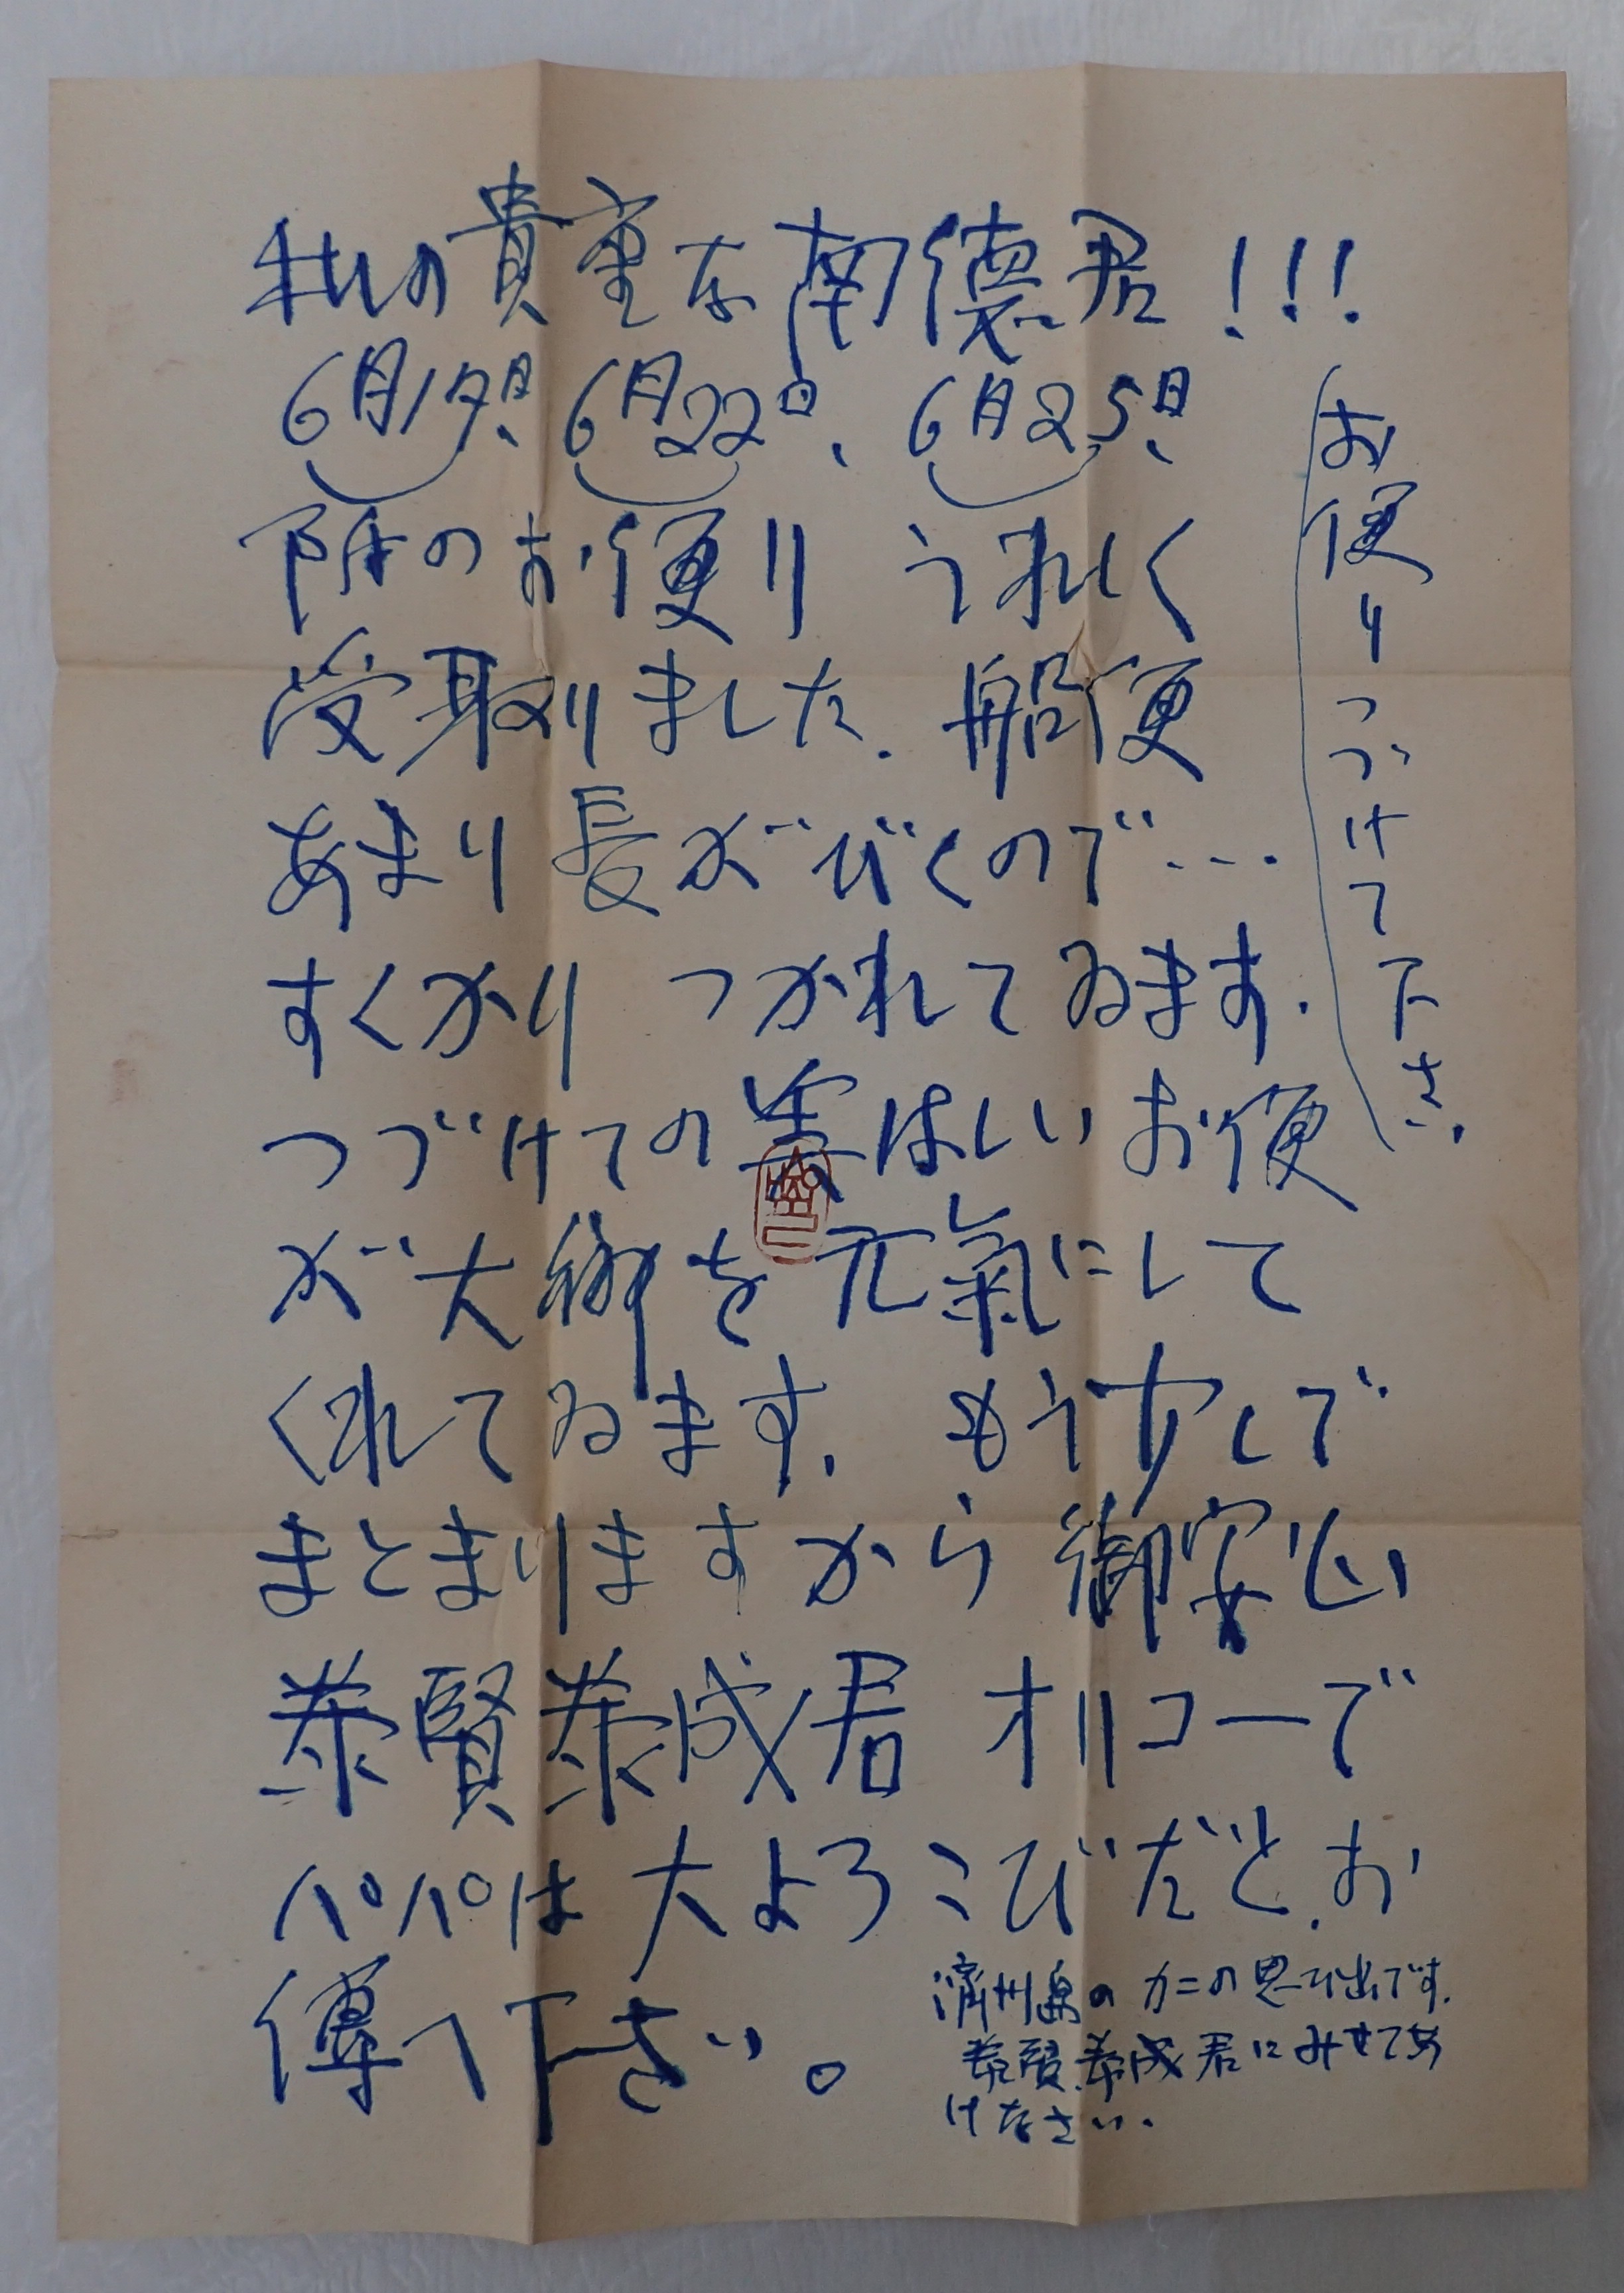 私の貴重な南德君!!!
6月19日、6月22日、6月25日、
附のお便り うれしく
受取りました. 船便
あまり長がびくので...
すくかり つかれてゐます.
つづけての美はしいお便
が大鄕を元氣にして
くれてゐます. もう少しで
まとまりますから御安心
泰賢泰成君 オリコーで
パパは大よろこびだと.お
傳へ下さい。
お便りつづけて下さい.
濟州島のカニの思ひ出です.
泰賢、泰成君にみせてあ
げなさい.